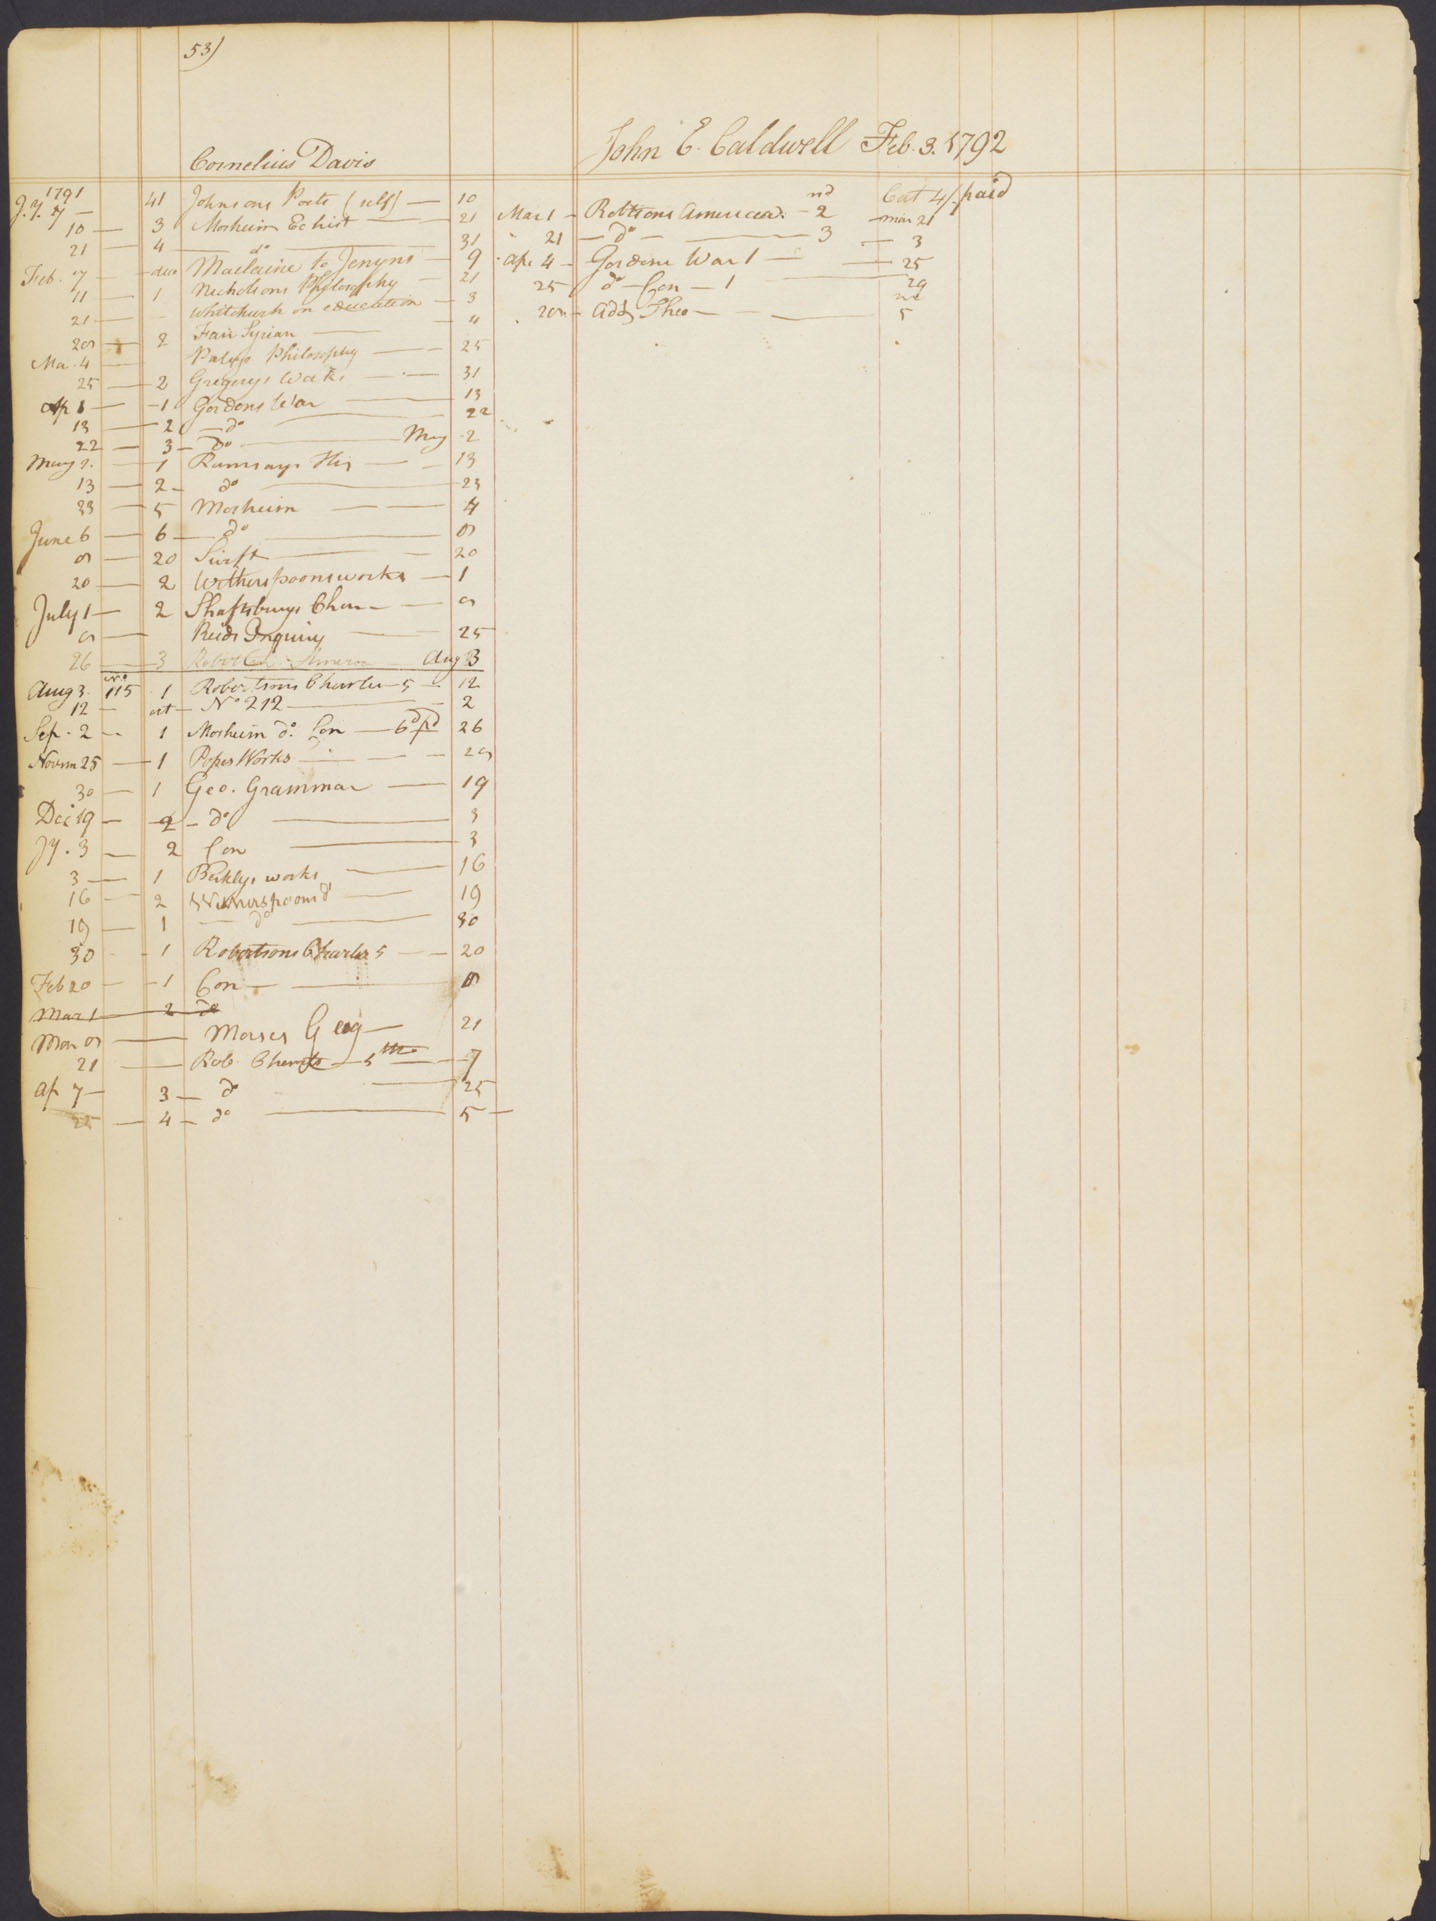 53)
Cornelius Davis
1791
Jy. 7 — 41 Johnsons Poets (self) — 10
10 — 3 Mosheim Ec hist — 21
21 — 4 — do — 31
Feb. 7 — duo Maclaine to Jenyns — 9
11 — 1 Nicholsons Philosophy — 21
21 — Whitchurch on education — 3
2 Fair Syrian — 4
Mar. 4 — Paleys Philosophy — 25
25 — 2 Gregorys Works — 31
Ap 1 — 1 Gordons War — 13
13 — 2 — do — 22
22 — 3 — do — May 2
May 2. — 1 Ramsays His — 13
13 — 2 — do — 23
23 — 5 Mosheim — 4
June 6 — 6 — do — 8
8 — 20 Swift — 20
20 — 2 Witherspoons works — 1
July 1 — 2 Shaftsburys Char — 8
8 — Reids Inquiry — 25
26 — 3 Robertson America Aug 3
Aug 3. No. 115 1 Robertsons Charles 5 — 12
12 — oct — No 212 — 2
Sep. 2 — 1 Mosheim do. Con — 6d pd 26
Novem 25 — 1 Popes Works — 29
30 — 1 Geo. Grammar — 19
Dec 19 — 2 — do — 3
Jy. 3 — 2 Con — 3
3 — 1 Berklys works — 16
16 — 2 Witherspoons — 19
19 — 1 — do — 30
30 — 1 Robertsons Charles 5 — 20
Feb 20 — 1 Con — 8
Mar 1 — 2 do
Mar 8 — Morses Geog — 21
21 — Rob. Charles — 5th — 7
Ap 7 — 3 — do — 25
25 — 4 — do — 5 —
John E. Caldwell Feb. 3. 1792
Cat 4/. paid
Mar 1 — Robtsons America. — 2nd — Mar 21
21 — do — 3 — 3
Apr 4 — Gordons War 1 — 25
25 do — Con — 1 — 29
28 — Adl, Theo — 5